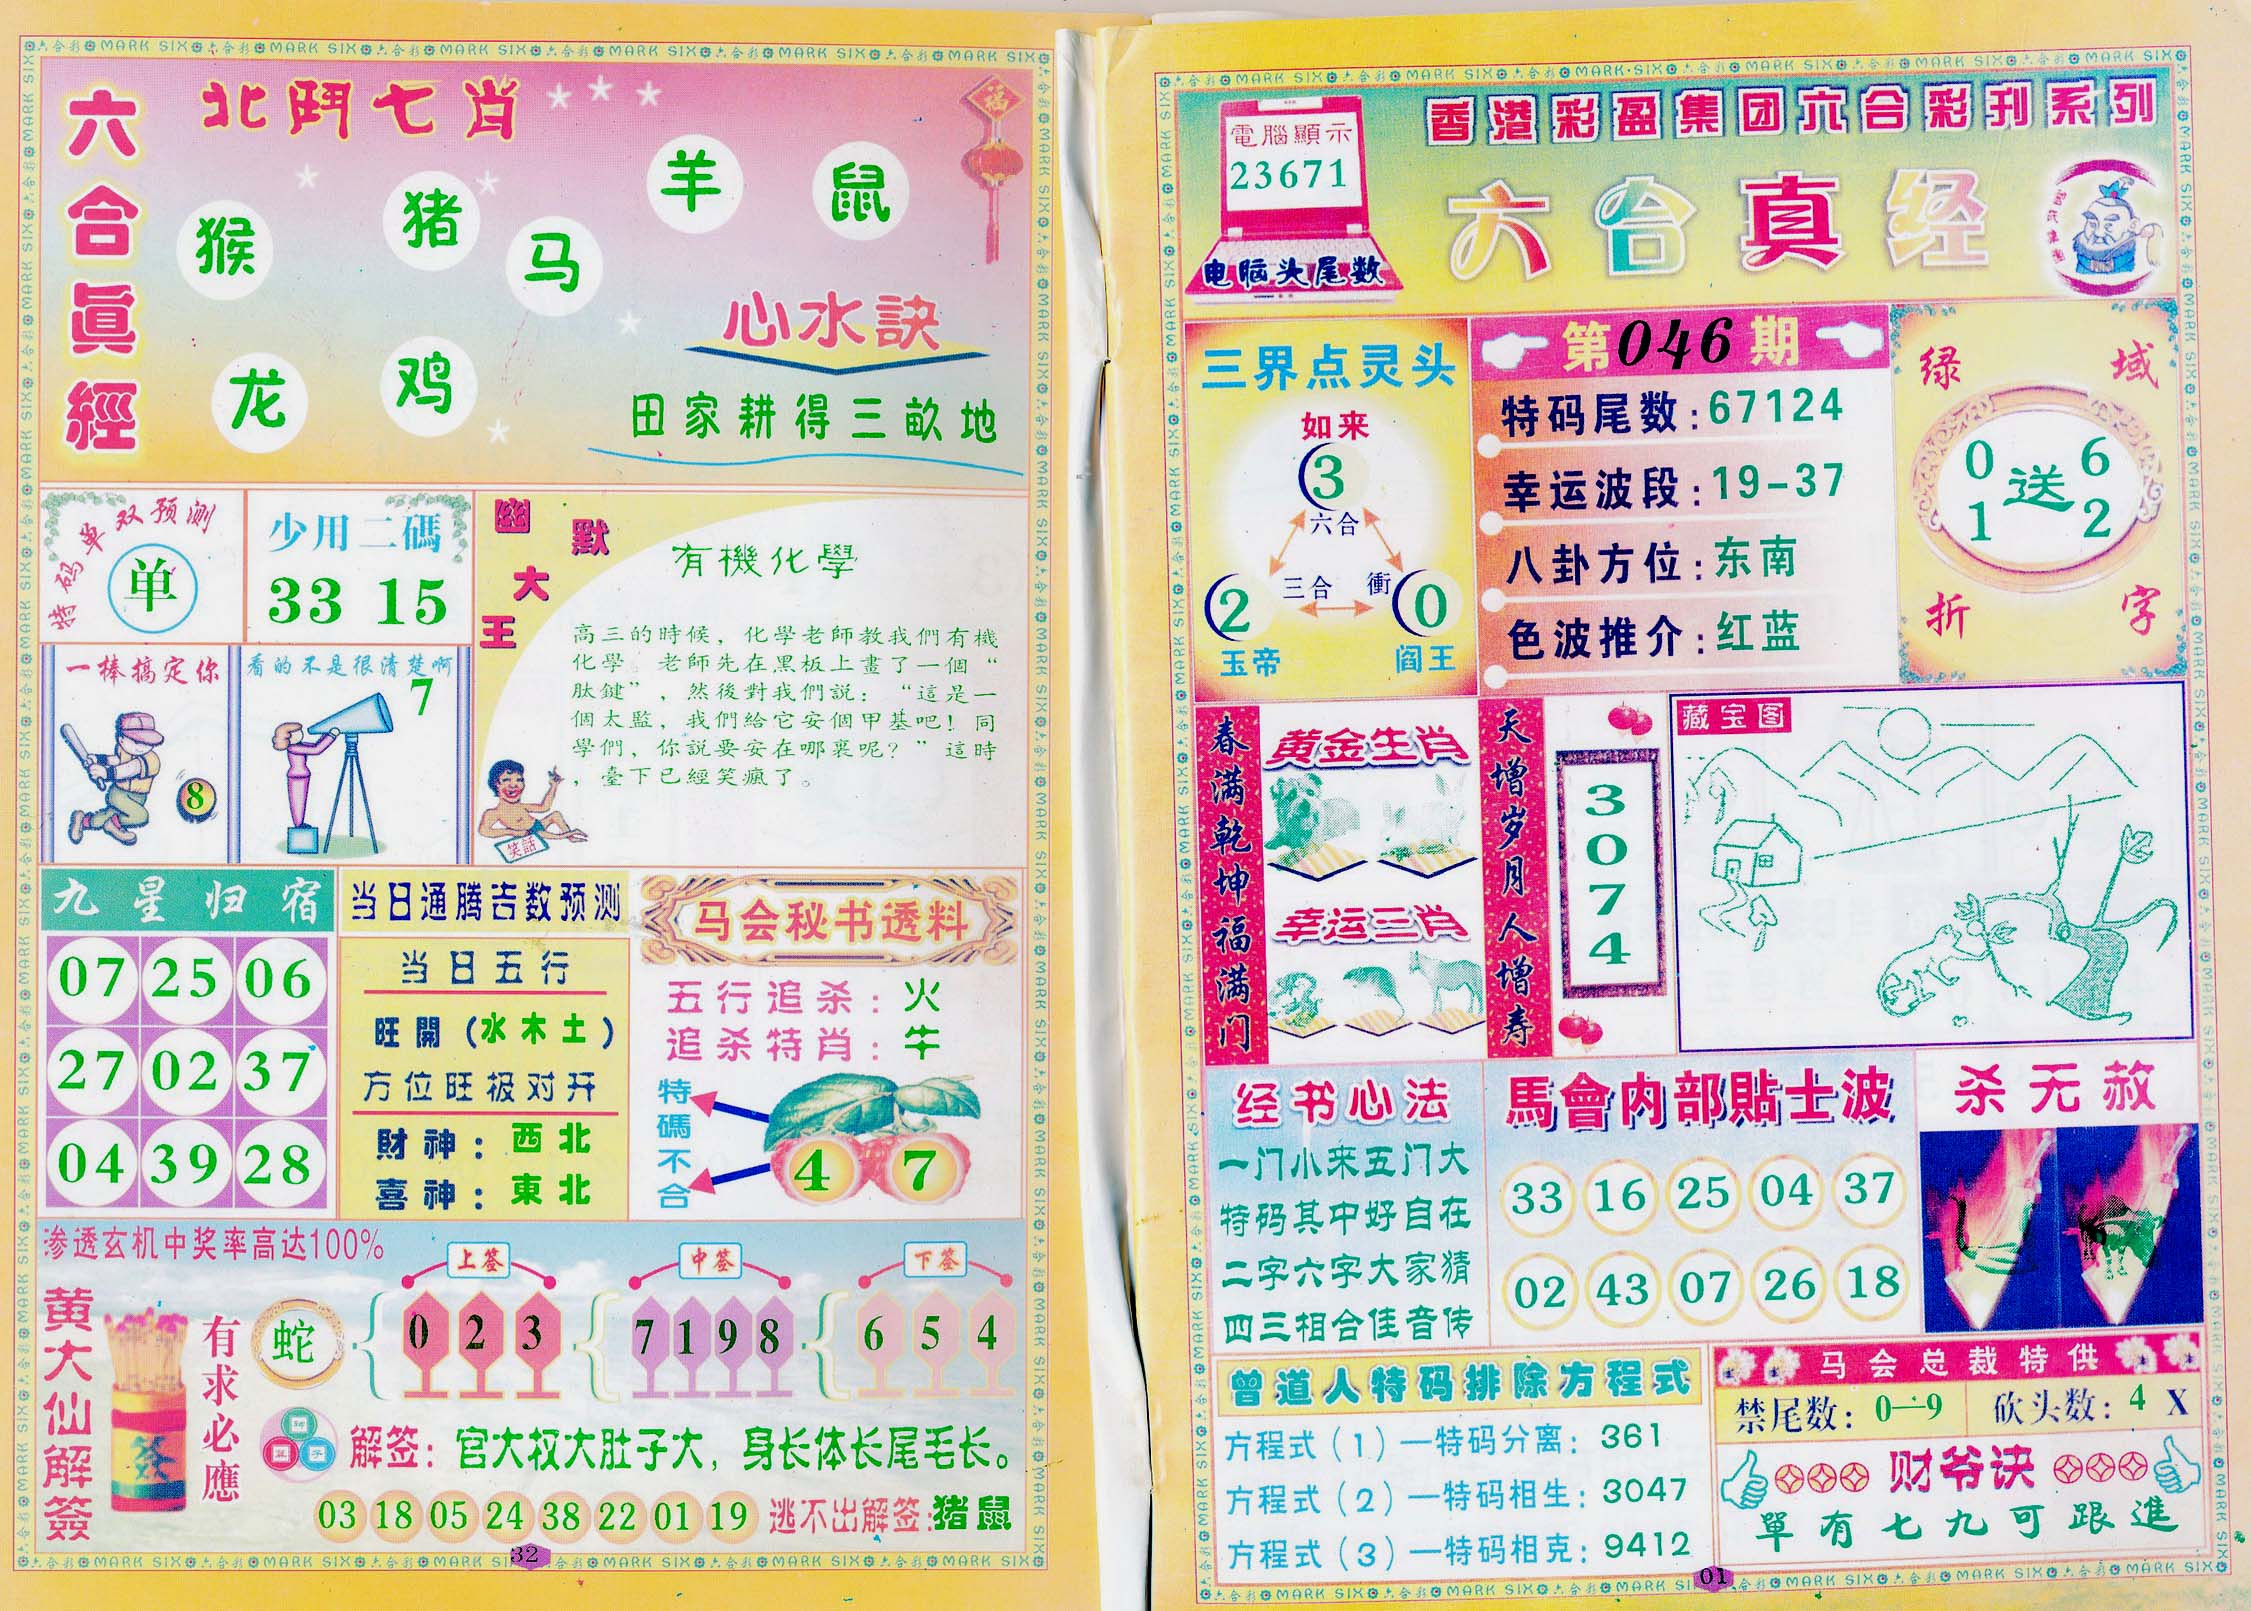 六合眞經
北鬥七肖
猴
猪
马
羊
鼠
龙
鸡
福
心水訣
田家耕得三畝地
特码单双预测
单
少用二碼
33 15
一棒搞定你
8
看的不是很清楚啊
7
幽默大王
有機化學
高三的時候，化學老師教我們有機
化學。老師先在黑板上畫了一個“
肽鍵”，然後對我們説：“這是一
個太監，我們給它安個甲基吧！同
學們，你説要安在哪裏呢？”這時
，臺下已經笑瘋了。
笑話
九星归宿
07 25 06
27 02 37
04 39 28
当日通腾吉数预测
当日五行
旺開（水木土）
方位旺极对开
財神：西北
喜神：東北
马会秘书透料
五行追杀：火
追杀特肖：牛
特碼不合
4 7
渗透玄机中奖率高达100%
黄大仙解簽
签
有求必應
蛇
上签
0 2 3
中签
7 1 9 8
下签
6 5 4
解签：官大权大肚子大，身长体长尾毛长。
03 18 05 24 38 22 01 19 逃不出解签:猪鼠
32
電腦顯示
23671
电脑头尾数
香港彩盈集团六合彩刊系列
六合真经
三界点灵头
如来
3
六合
三合
衝
2
0
玉帝
阎王
第046期
特码尾数:67124
幸运波段:19-37
八卦方位:东南
色波推介:红蓝
绿域折字
0 6
送
1 2
春满乾坤福满门
黄金生肖
幸运三肖
天增岁月人增寿
3074
藏宝图
经书心法
一门小来五门大
特码其中好自在
二字六字大家猜
四三相合佳音传
馬會内部貼士波
33 16 25 04 37
02 43 07 26 18
杀无赦
曾道人特码排除方程式
方程式（1）—特码分离：361
方程式（2）—特码相生：3047
方程式（3）—特码相克：9412
马会总裁特供
禁尾数：0—9
砍头数：4 X
财爷诀
單有七九可跟進
01
六合彩 MARK SIX